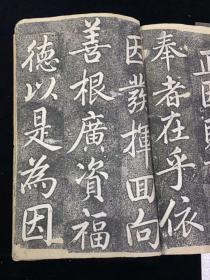 奉者在乎依
因發揮回向
善根廣資福
德以是為因